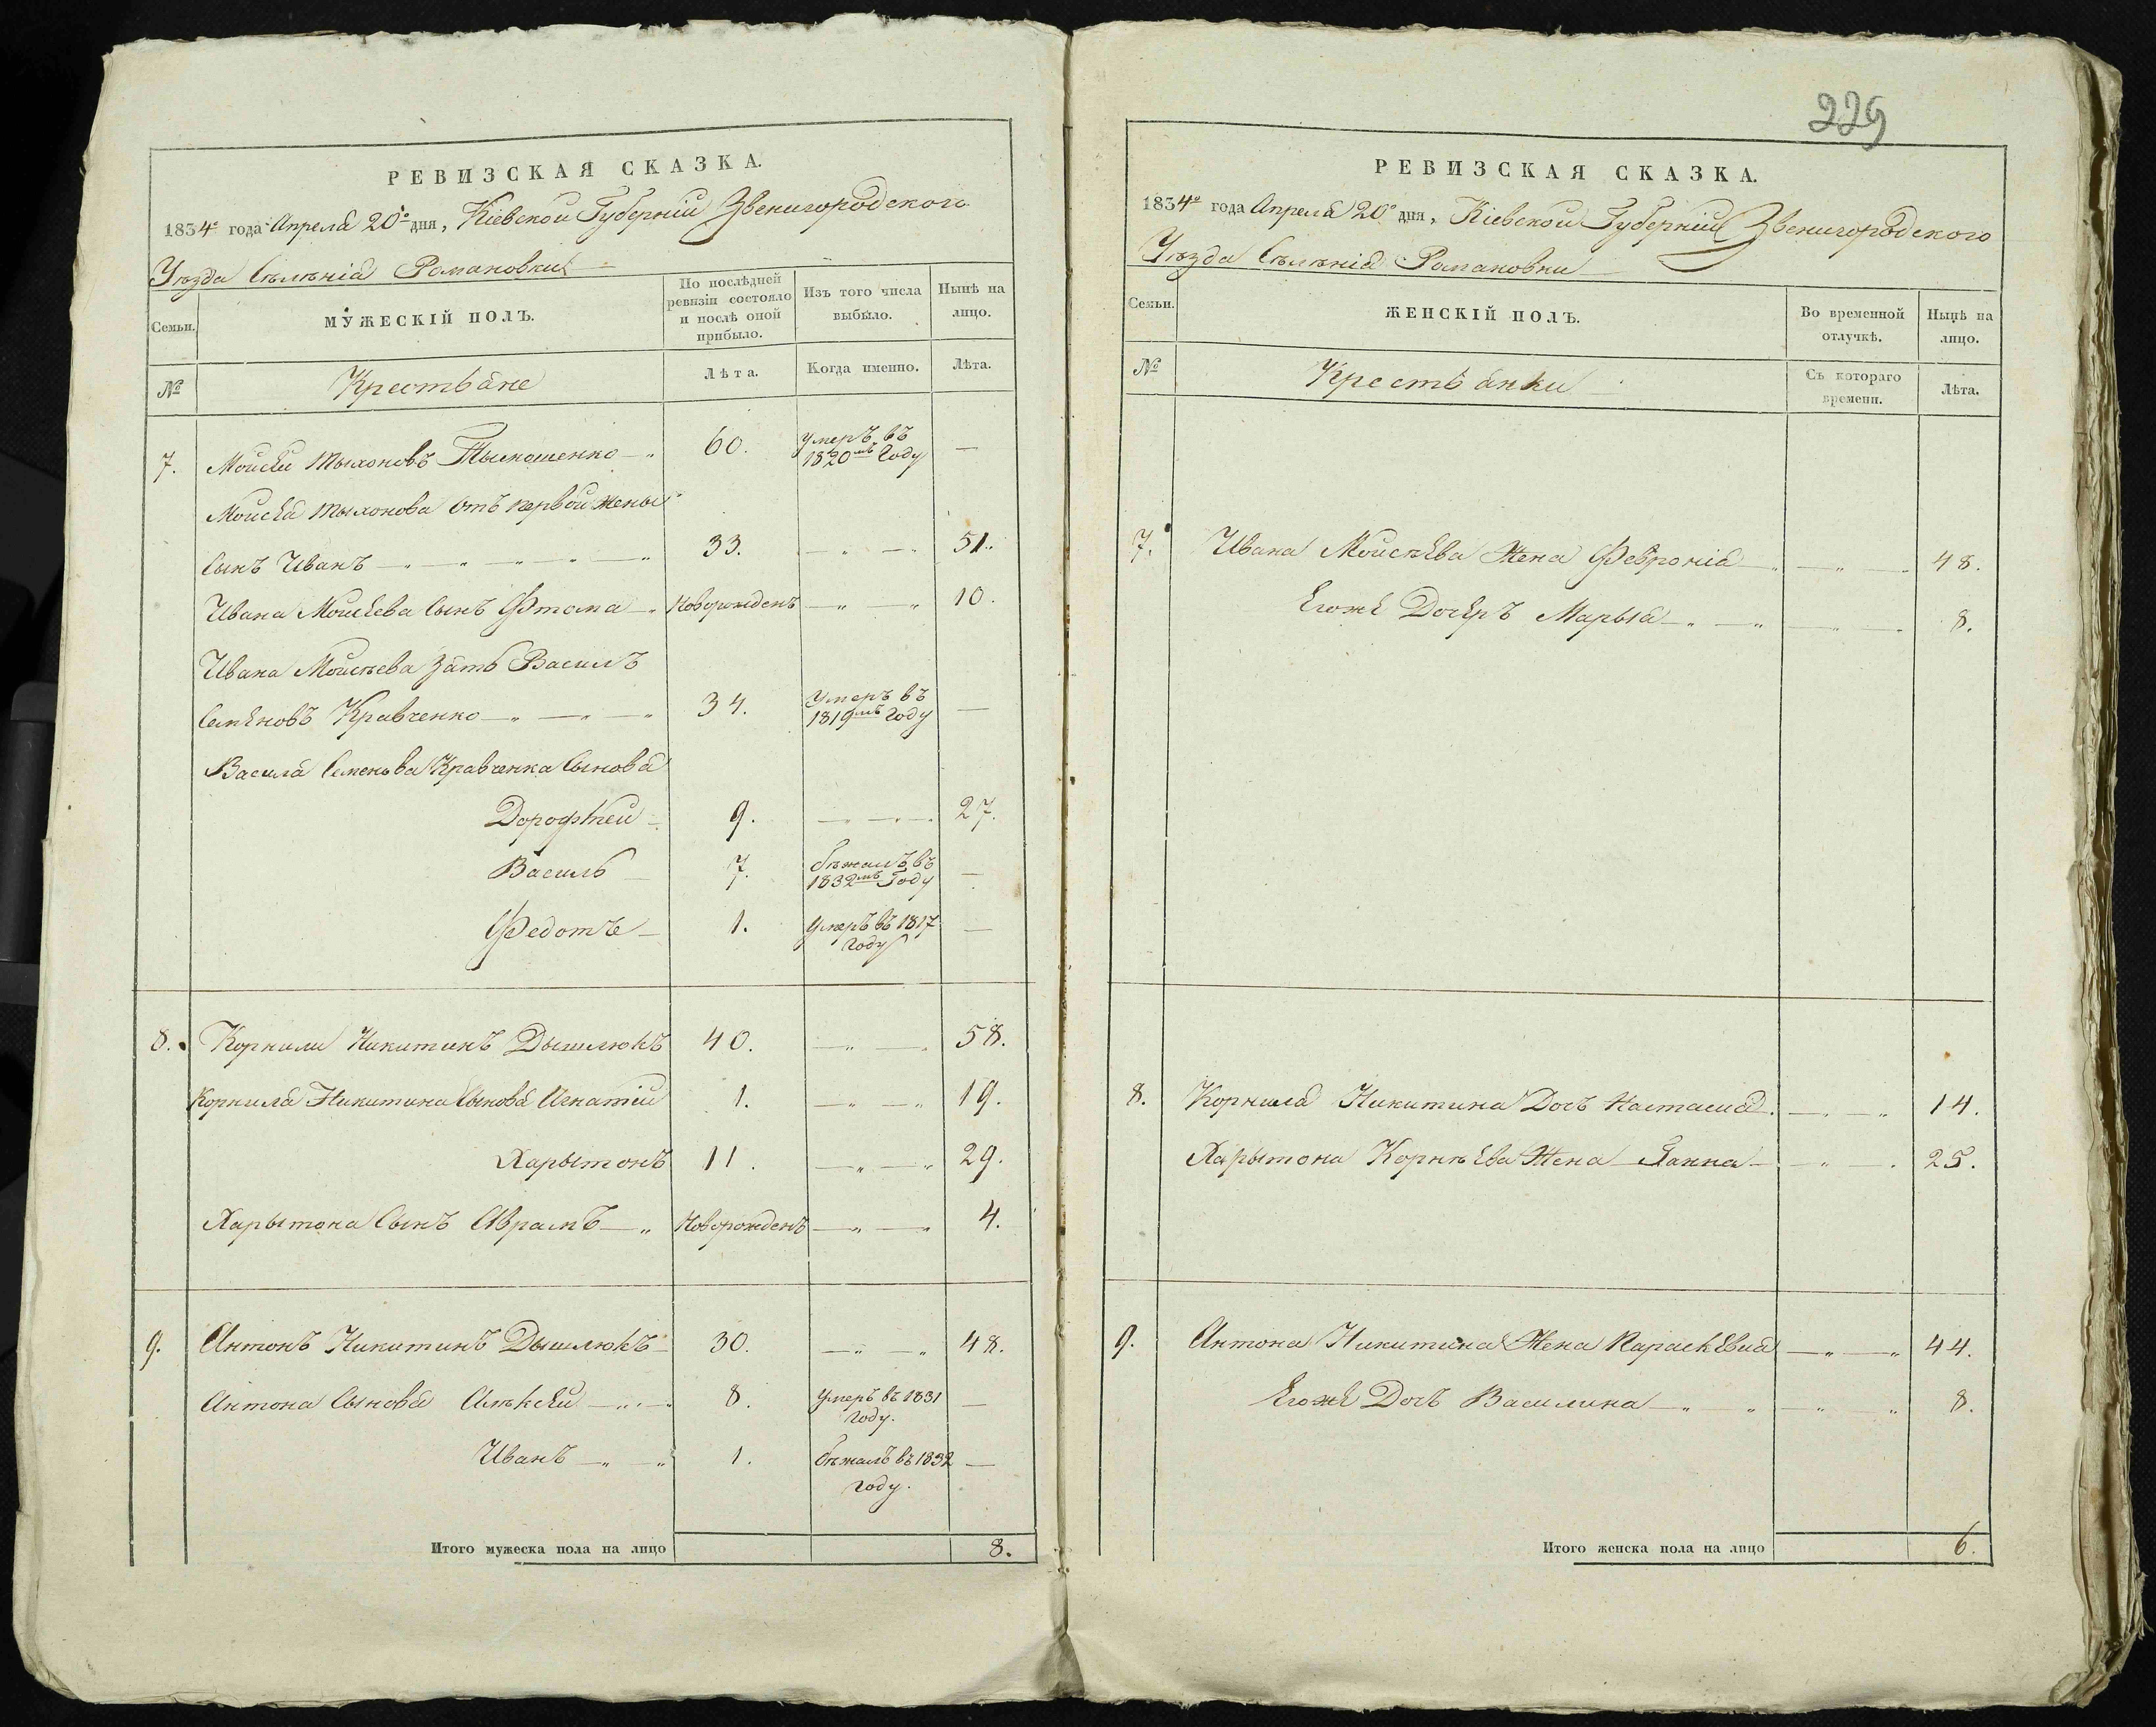 РЕВИЗСКАЯ СКАЗКА.
1834го года Апреля 20го дня, Кіевской Губерніи Звенигородского
Уѣзда Сѣлѣнія Романовки
Семьи.
МУЖЕСКІЙ ПОЛЪ.
По послѣдней ревизіи состояло и послѣ оной прибыло.
Изъ того числа выбыло.
Ныиѣ на лицо.
№
Крестьяне
Лѣта.
Когда именно.
Лѣта.
7. Мойсей Тыхоновъ 60. умеръ въ 1820мъ Году —
Мойсея Тыхонова отъ первой жены
Сынъ Иванъ 33. 51.
Ивана Мойсеева Сынъ Фтома Новорожденъ 10.
Ивана Мойсѣева Зять Василъ
Семеновъ Кравченко 34. Умеръ въ 1819мъ Году —
Васила Семеньва Кравченка Сыновя
Дорофтей 9. 27.
Василь 7. бѣжалъ въ 1832мъ Году —
Федотъ 1. Умеръ въ 1817 Году —
8. Корнили Никитинъ Дышлюкъ 40. 58.
Корнила Никитина Сыновя Игнатій 1. 19.
Харытонъ 11. 29.
Харытона Сынъ Аврамъ Новорожденъ 4.
9. Антонъ Никитинъ Дышлюкъ 30. 48.
Антона Сыновя Алѣксей 8. Умеръ въ 1831 Году. —
Иванъ 1. бѣжалъ въ 1832 году. —
Итого мужеска пола на лицо 8.
229
РЕВИЗСКАЯ СКАЗКА.
1834го года Апреля 20го дня, Кіевской Губерніи Звенигородского
Уѣзда Сѣлѣнія Романовки
Семьи.
ЖЕНСКІЙ ПОЛЪ.
Во временной отлучкѣ.
Ныиѣ на лицо.
№
Крестьянки
Съ котораго времени.
Лѣта.
7. Ивана Мойсѣева Жена Феѵронія 48.
Егоже Дочеръ Марыя 8.
8. Корнила Никитина Дочъ Настасия 14.
Харытона Корнѣева Жена Ганна 25.
9. Антона Никитина Жена Параскевия 44.
Егоже Дочъ Василина 8.
Итого женска пола на лицо 6.